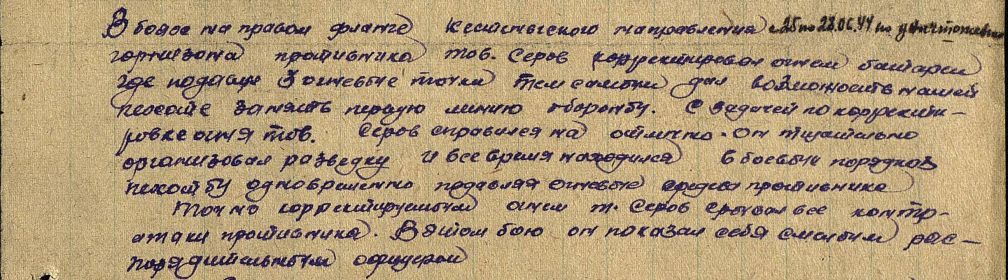 В боях на правом фланге Кестеньгского направления с 25 по 28.06.44 по уничтожению
гарнизона противника тов. Серов корректировал огнем батареи
где подавил 3 огневые точки тем самым дал возможность нашей
пехоте занять первую линию обороны. С задачей по корректи-
ровке огня тов. Серов справился на отлично. Он тщательно
организовал разведку и все время находился в боевых порядках
пехоты одновременно подавляя огневые средства противника
Точно корректируемым огнем т. Серов срывал все контр-
атаки противника. В этом бою он показал себя смелым рас-
порядительным офицером